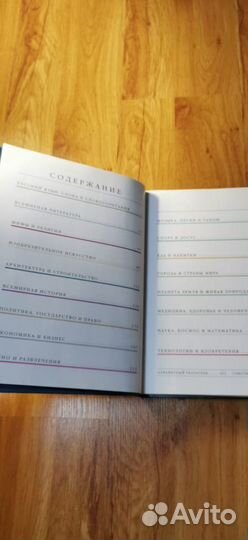 СОДЕРЖАНИЕ
РУССКИЙ ЯЗЫК: СЛОВА И СЛОВОСОЧЕТАНИЯ
ВСЕМИРНАЯ ЛИТЕРАТУРА
МИФЫ И РЕЛИГИИ
ИЗОБРАЗИТЕЛЬНОЕ ИСКУССТВО
АРХИТЕКТУРА И СТРОИТЕЛЬСТВО
ВСЕМИРНАЯ ИСТОРИЯ
ПОЛИТИКА, ГОСУДАРСТВО И ПРАВО
ЭКОНОМИКА И БИЗНЕС
И РАЗВЛЕЧЕНИЯ
МУЗЫКА, ПЕСНИ И ТАНЦЫ
СПОРТ И ДОСУГ
ЕДА И НАПИТКИ
ГОРОДА И СТРАНЫ МИРА
ПЛАНЕТА ЗЕМЛЯ И ЖИВАЯ ПРИРОДА
МЕДИЦИНА, ЗДОРОВЬЕ И ЧЕЛОВЕК
НАУКА, КОСМОС И МАТЕМАТИКА
ТЕХНОЛОГИИ И ИЗОБРЕТЕНИЯ
АЛФАВИТНЫЙ УКАЗАТЕЛЬ
Avito